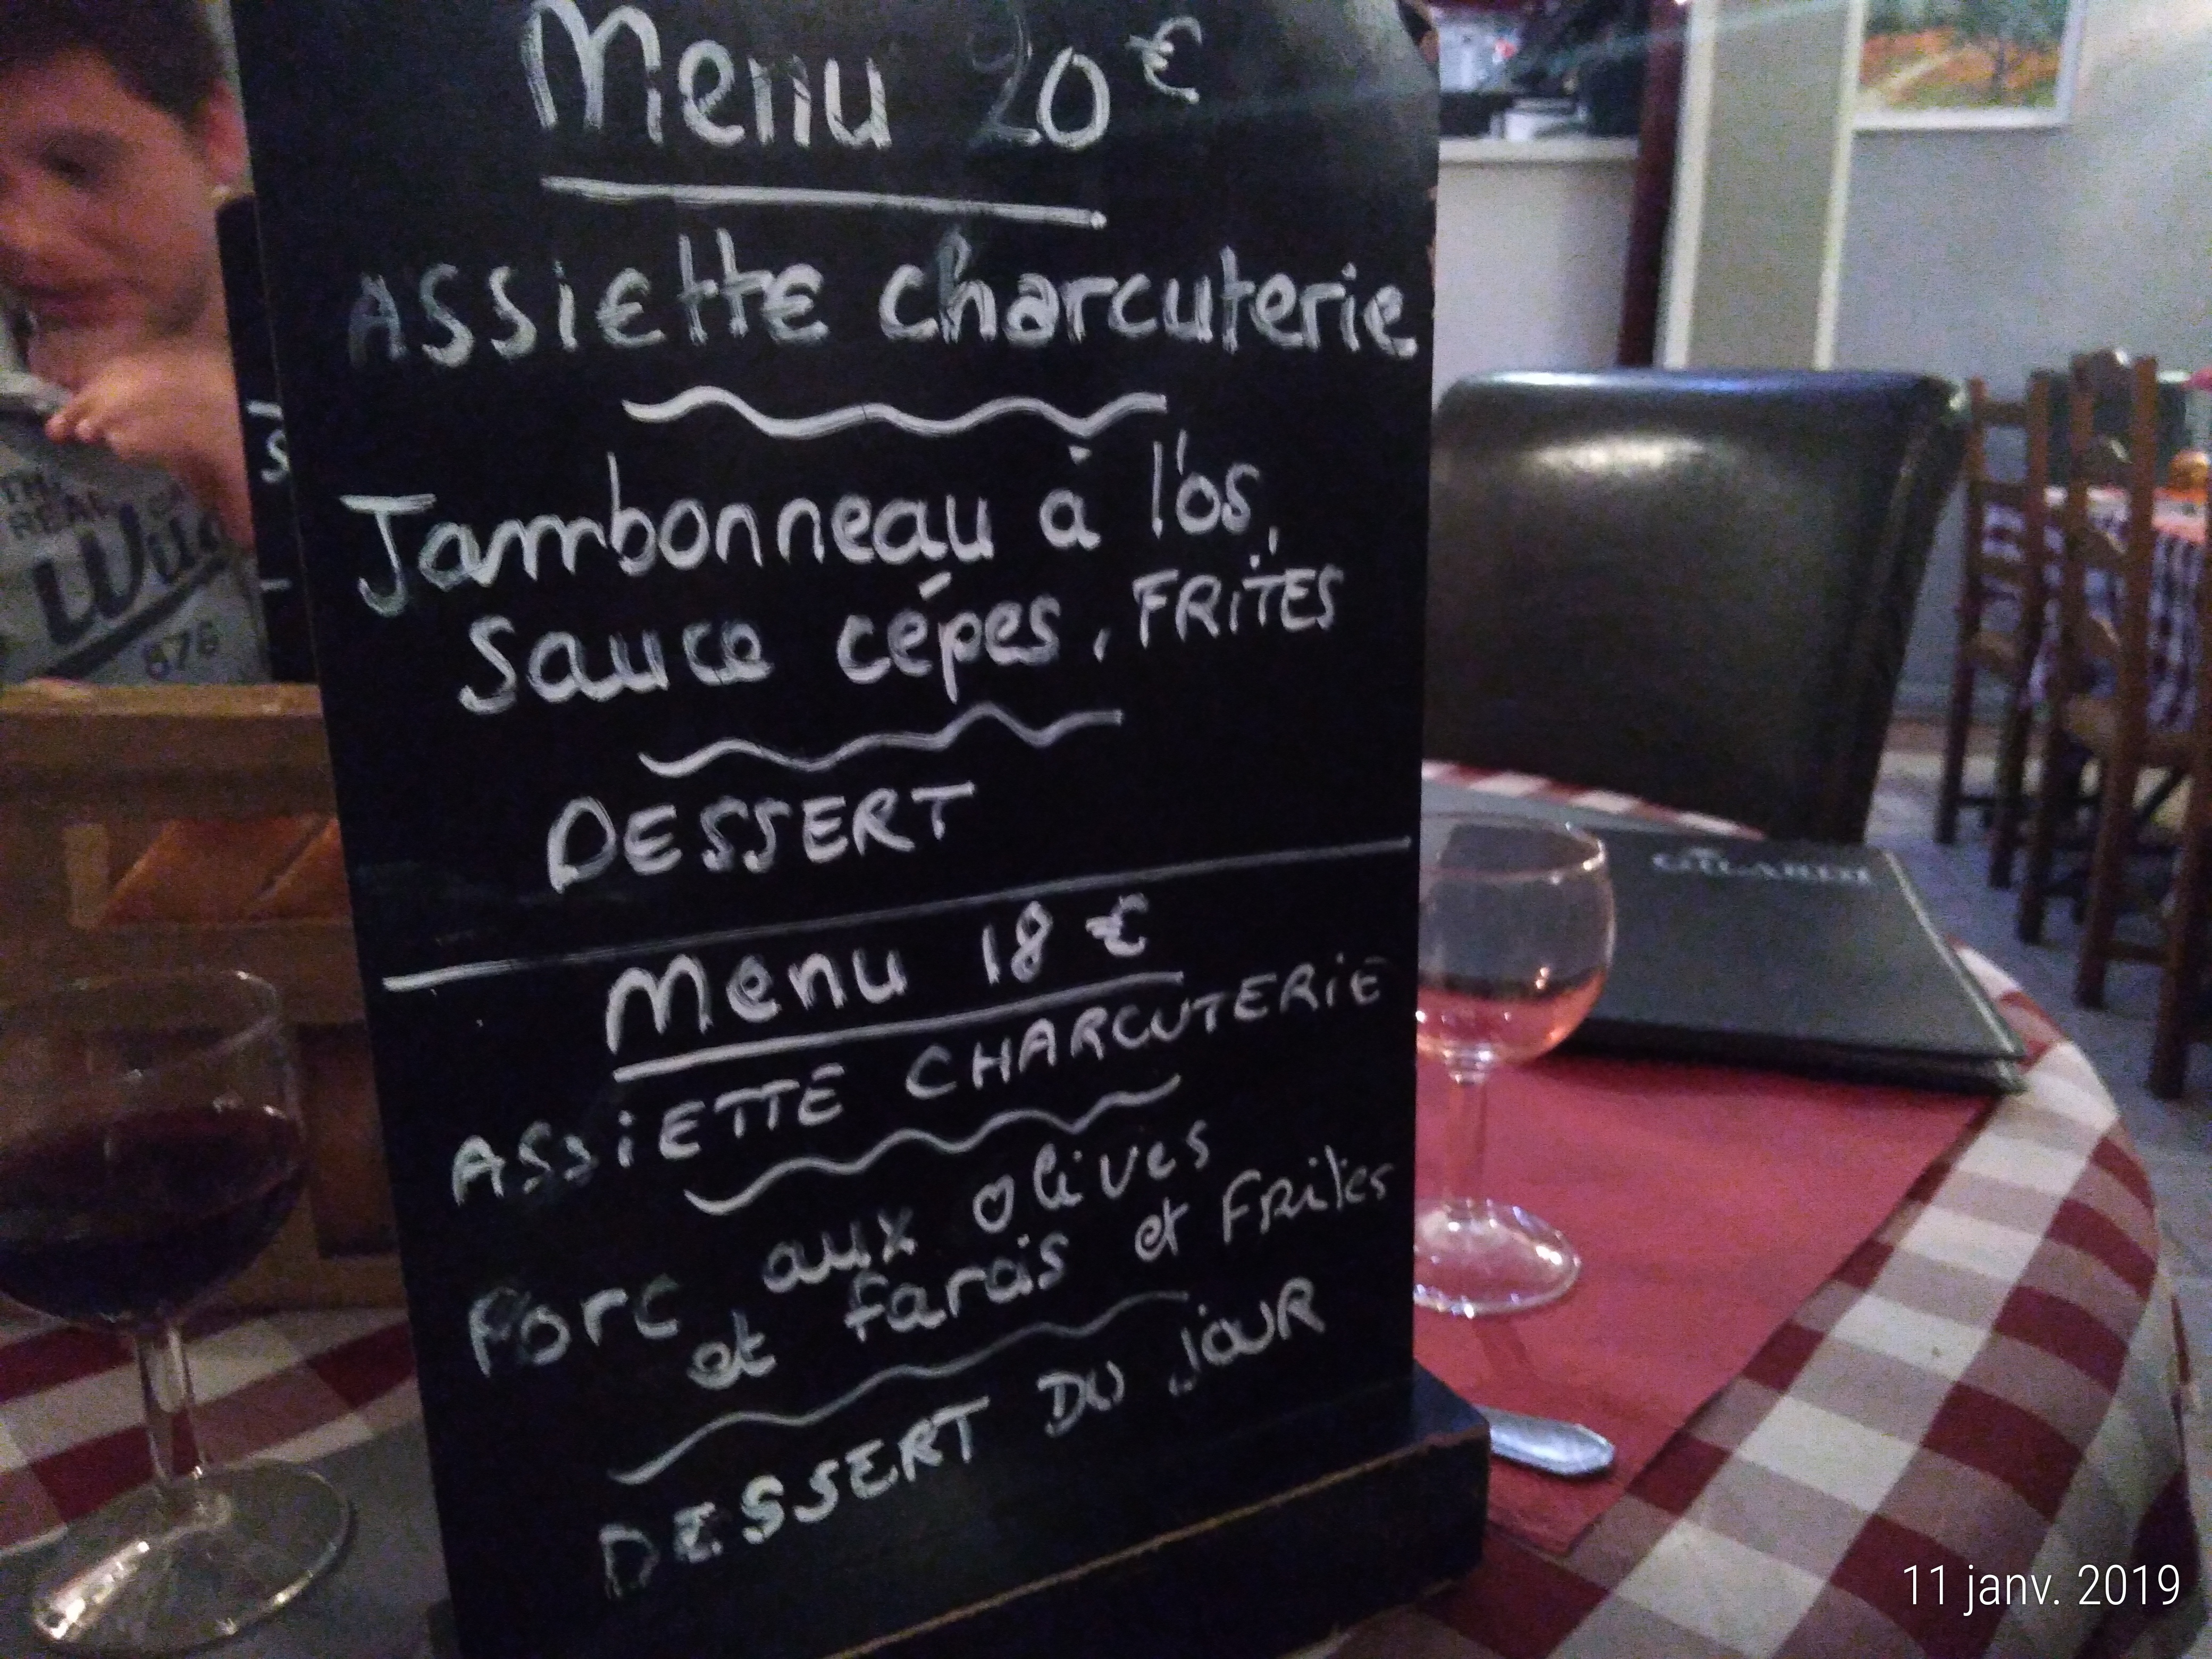 Menu 20€
Assiette charcuterie
Jambonneau à l'os,
Sauce cépes, FRiTES
DESSERT
Menu 18 €
ASSiETTE CHARCUTERiE
Porc aux olives
et farcis et Frites
DESSERT DU JOUR
REAL
Wild
876
11 janv. 2019